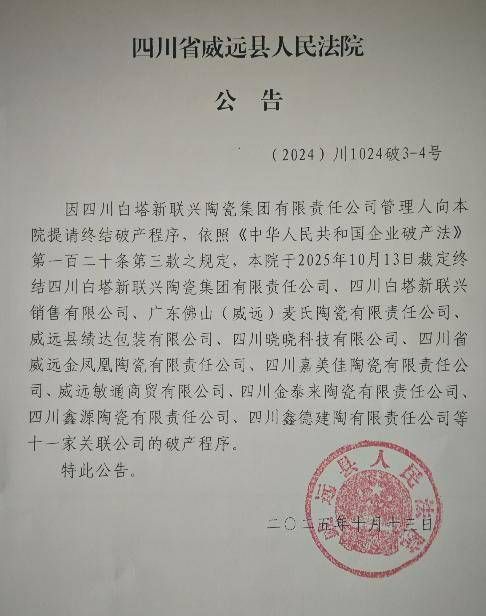 四川省威远县人民法院
公 告
（2024）川1024破3-4号
因四川白塔新联兴陶瓷集团有限责任公司管理人向本
院提请终结破产程序，依照《中华人民共和国企业破产法》
第一百二十条第三款之规定，本院于2025年10月13日裁定终
结四川白塔新联兴陶瓷集团有限责任公司、四川白塔新联兴
销售有限公司、广东佛山（威远）麦氏陶瓷有限责任公司、
威远县绩达包装有限公司、四川晓晓科技有限公司、四川省
威远金凤凰陶瓷有限责任公司、四川嘉美佳陶瓷有限责任公
司、威远敏通商贸有限公司、四川金泰来陶瓷有限责任公司、
四川鑫源陶瓷有限责任公司、四川鑫德建陶有限责任公司等
十一家关联公司的破产程序。
特此公告。
威远县人民法院
二〇二五年十月十三日